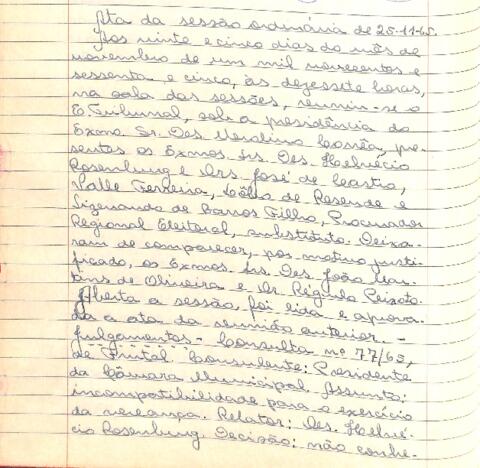 Ata da sessão ordinária de 25-11-65.
Aos vinte e cinco dias do mês de
novembro de um mil novecentos e
sessenta e cinco, às dezessete horas,
na sala das sessões, reuniu-se o
E. Tribunal, sob a presidência do
Exmo. Sr. Des. Merolino Corrêa, pre-
sentes os Exmos. Srs. Des. Helvécio
Rosenburg e Drs. José de Castro,
Valle Ferreira, Célio de Resende e
Sizenando de Barros Filho, Procurador
Regional Eleitoral, substituto. Deixa-
ram de comparecer, por motivo justi-
ficado, os Exmos. Srs. Des. João Mar-
tins de Oliveira e Dr. Régulo Peixoto.
Aberta a sessão, foi lida e aprova-
da a ata da reunião anterior. -
Julgamentos - Consulta nº 77/65,
de Frutal. Consulente: Presidente
da Câmara Municipal. Assunto:
incompatibilidade para o exercício
da vereança. Relator: Des. Helvé-
cio Rosenburg. Decisão: não conhe-